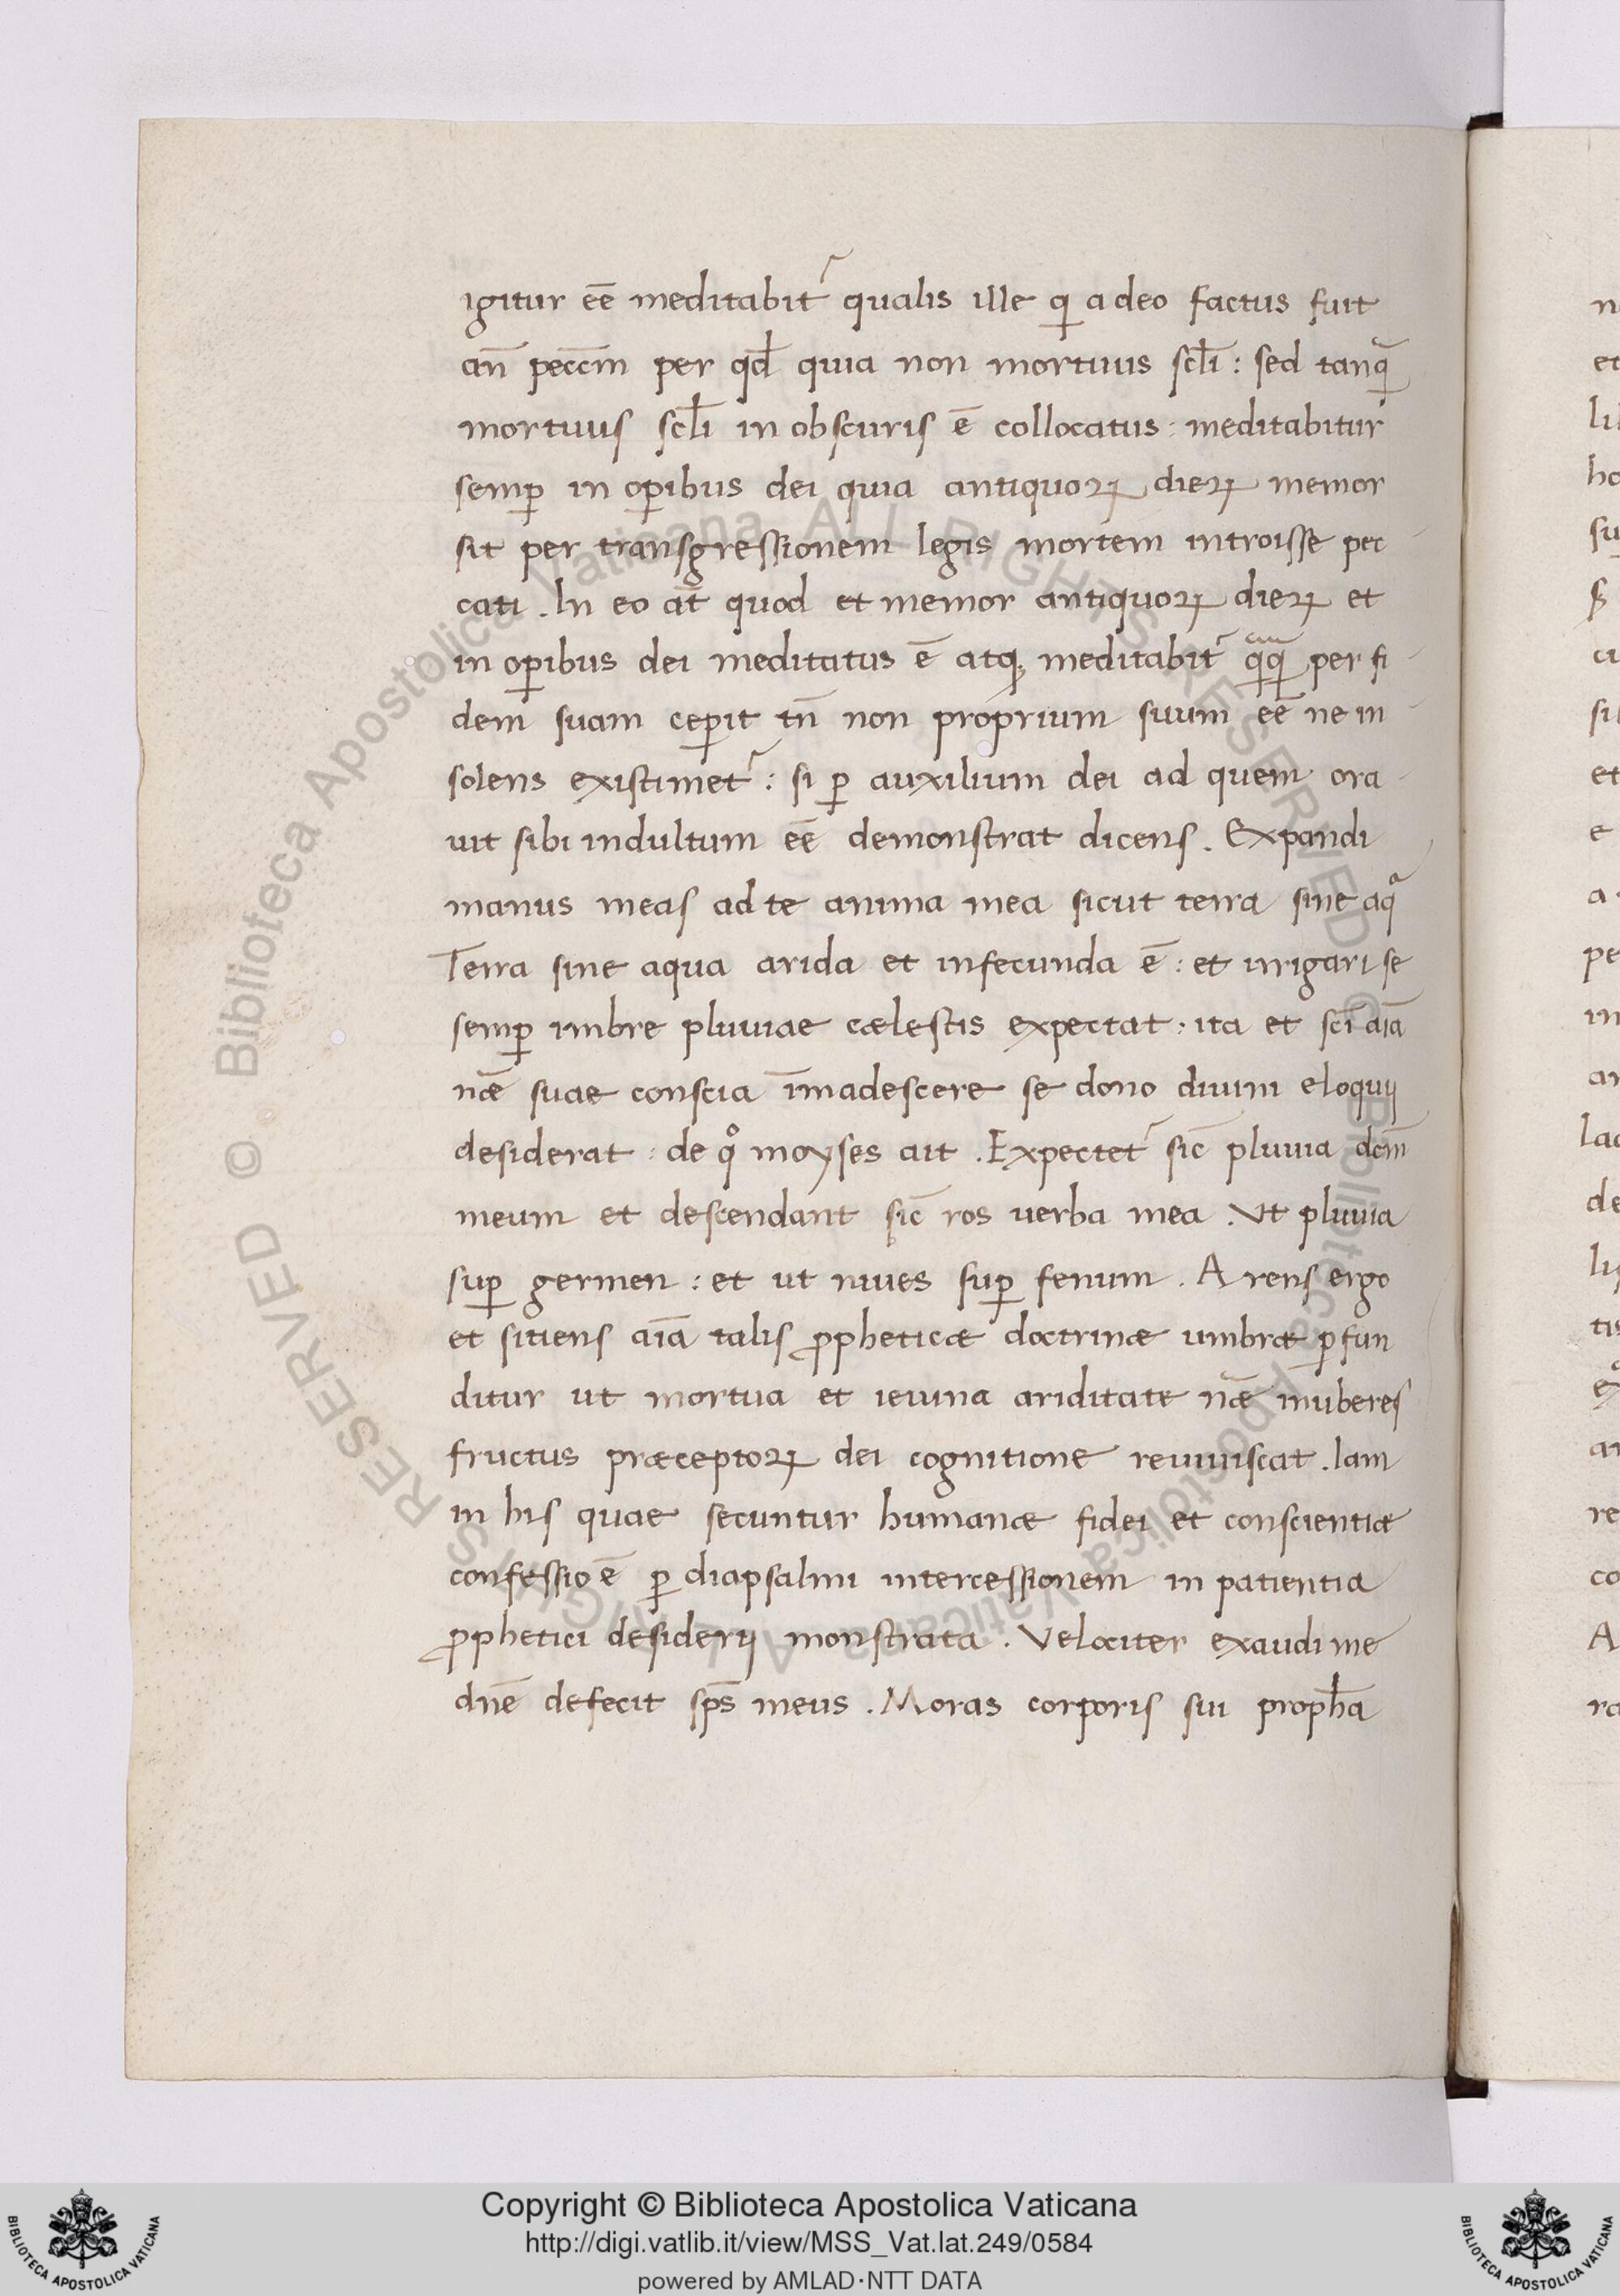 igitur eē meditabit᷑ qualis ille qͥ a deo factus fuit
an̄ peccm̄ per qđ quia non mortuus scl̄i : sed tanq̄
mortuus scl̄i in obscuris ē collocatus : meditabitur
semꝑ in oꝑibus dei quia antiquoꝝ dieꝝ memor
sit per transgressionem legis mortem introisse pec
cati . In eo at̄ quod et memor antiquoꝝ dieꝝ et
in oꝑibus dei meditatus ē atq; meditabit᷑ qq̄ per fi
dem suam ceꝑit tn̄ non proprium suum eē ne in
solens existimet᷑ : si ꝑ auxilium dei ad quem ora
uit sibi indultum eē demonstrat dicens . Expandi
manus meas ad te anima mea sicut terra sine aqͣ
Terra sine aqua arida et infecunda ē : et irrigari se
semꝑ imbre pluuiae cælestis expectat : ita et scī aīa
nǣ suae conscia īmadescere se dono diuini eloquij
desiderat : de qͦ moyses ait . Expectet᷑ sic̄ pluuia dcm̄
meum et descendant sic̄ ros uerba mea . Vt pluuia
suꝑ germen : et ut niues suꝑ fenum . Arens ergo
et sitiens aīa talis ꝓpheticæ doctrinæ umbræ ꝑfun
ditur ut mortua et ieiuna ariditate nǣ in uberes
fructus præceptoꝝ dei cognitione reuiuiscat . Iam
in his quae secuntur humanæ fidei et conscientiæ
confessio ē ꝑ diapsalmi intercessionem in patientia
ꝓphetici desiderij monstrata . Velociter exaudi me
dn̄e defecit sps̄ meus . Moras corporis sui propħa
Copyright © Biblioteca Apostolica Vaticana
http://digi.vatlib.it/view/MSS_Vat.lat.249/0584
powered by AMLAD·NTT DATA
BIBLIOTECA APOSTOLICA VATICANA
BIBLIOTECA APOSTOLICA VATICANA
© Biblioteca Apostolica Vaticana ALL RIGHTS RESERVED
© Biblioteca Apostolica Vaticana ALL RIGHTS RESERVED